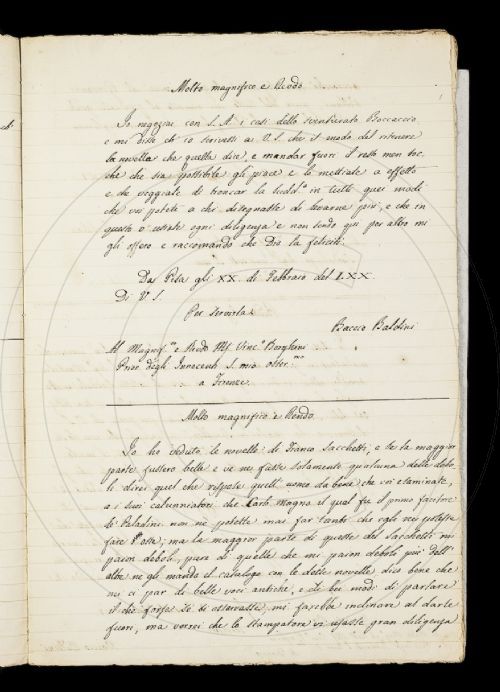 Molto magnifico e Rendo
Io negoziai con S. A. i casi dello sventurato Boccaccio
e mi disse ch'io scrivessi a V. S. che il modo del ritenere
la novella che quella dice, e mandar fuori il resto men toc-
che che sia possibile gli piace e lo mettiate a effetto
e che veggiate di troncar la in tutti quei modi
che voi potete a chi disegnasse di levarne più, e che in
questo v' usiate ogni diligenza e non sendo qui per altro mi
gli offero e raccomando che Dio la feliciti.
Da Pisa gli XX di Febbraio del LXX.
Di V. S.
Per servirla
Baccio Baldini
Al Magnif.co e Rendo Ms. Vinc.o Borghini
Priore degli Innocenti S. mio osser.mo
a Firenze.
Molto magnifico e Rendo.
Io ho veduto le novelle di Franco Sacchetti, e se la maggior
parte fussero belle e ve ne fusse solamente qualcuna delle debo-
li direi quel che rispose quell' uomo da bene che voi esaminate,
a i suoi calunniatori che Carlo magno il qual fu il primo facitore
de' Paladini non ne potette mai far tanti che egli
fare ma la maggior parte di queste del Sacchetti mi
paion deboli, pure di quelle che mi paion deboli più dell'
altre ne gli mando il catalogo con le dette novelle dico bene che
mi ci par di belle voci antiche, e de bei modi di parlare
il che forse se si osservasse, mi farebbe inclinare al darle
fuori, ma vorrei che lo stampatore vi usasse gran diligenza